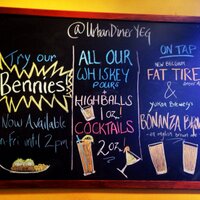 @UrbanDinerYEG
Try our
Bennies
Now Available
Fri until 2pm
ALL OUR
WHISKEY
POURS &
HIGHBALLS
1oz!
COCKTAILS
2oz!
ON TAP
NEW BELGIUM
FAT TIRE
&
Yukon Brewery's
BONANZA BROWN